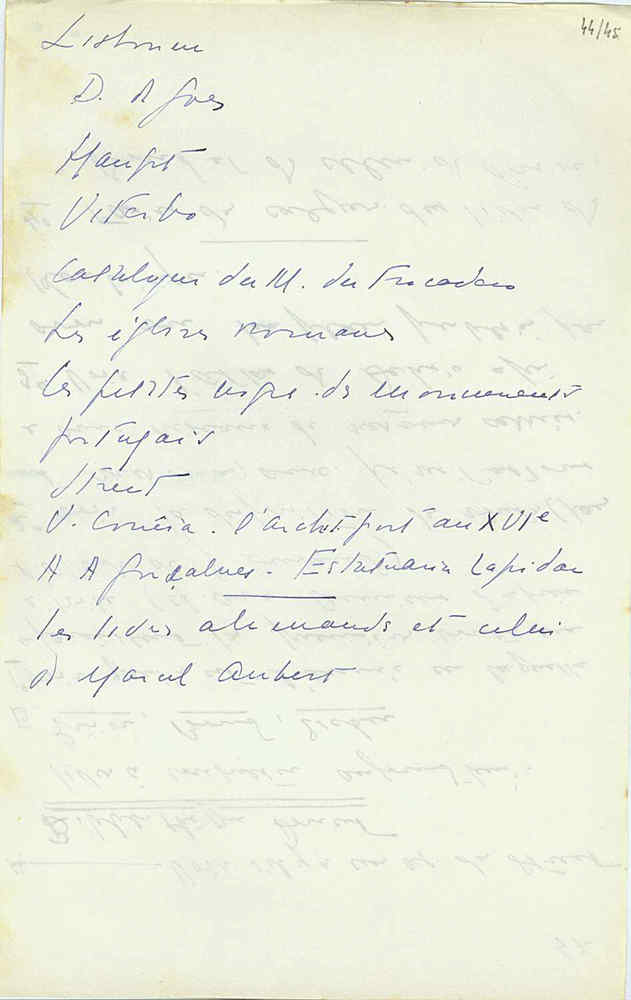 44/45
Lisbonne
D. de Goes
Haupt
Viterbo
Catalogue du M. du Trocadero
Les églises romanes
les petites de monuments
portugais
Street
V. Corrêia. l'archt. port au XVIe
A A Gonçalves. Estatuaria Lapidar
les livres allemands et celui
de Marcel Aubert